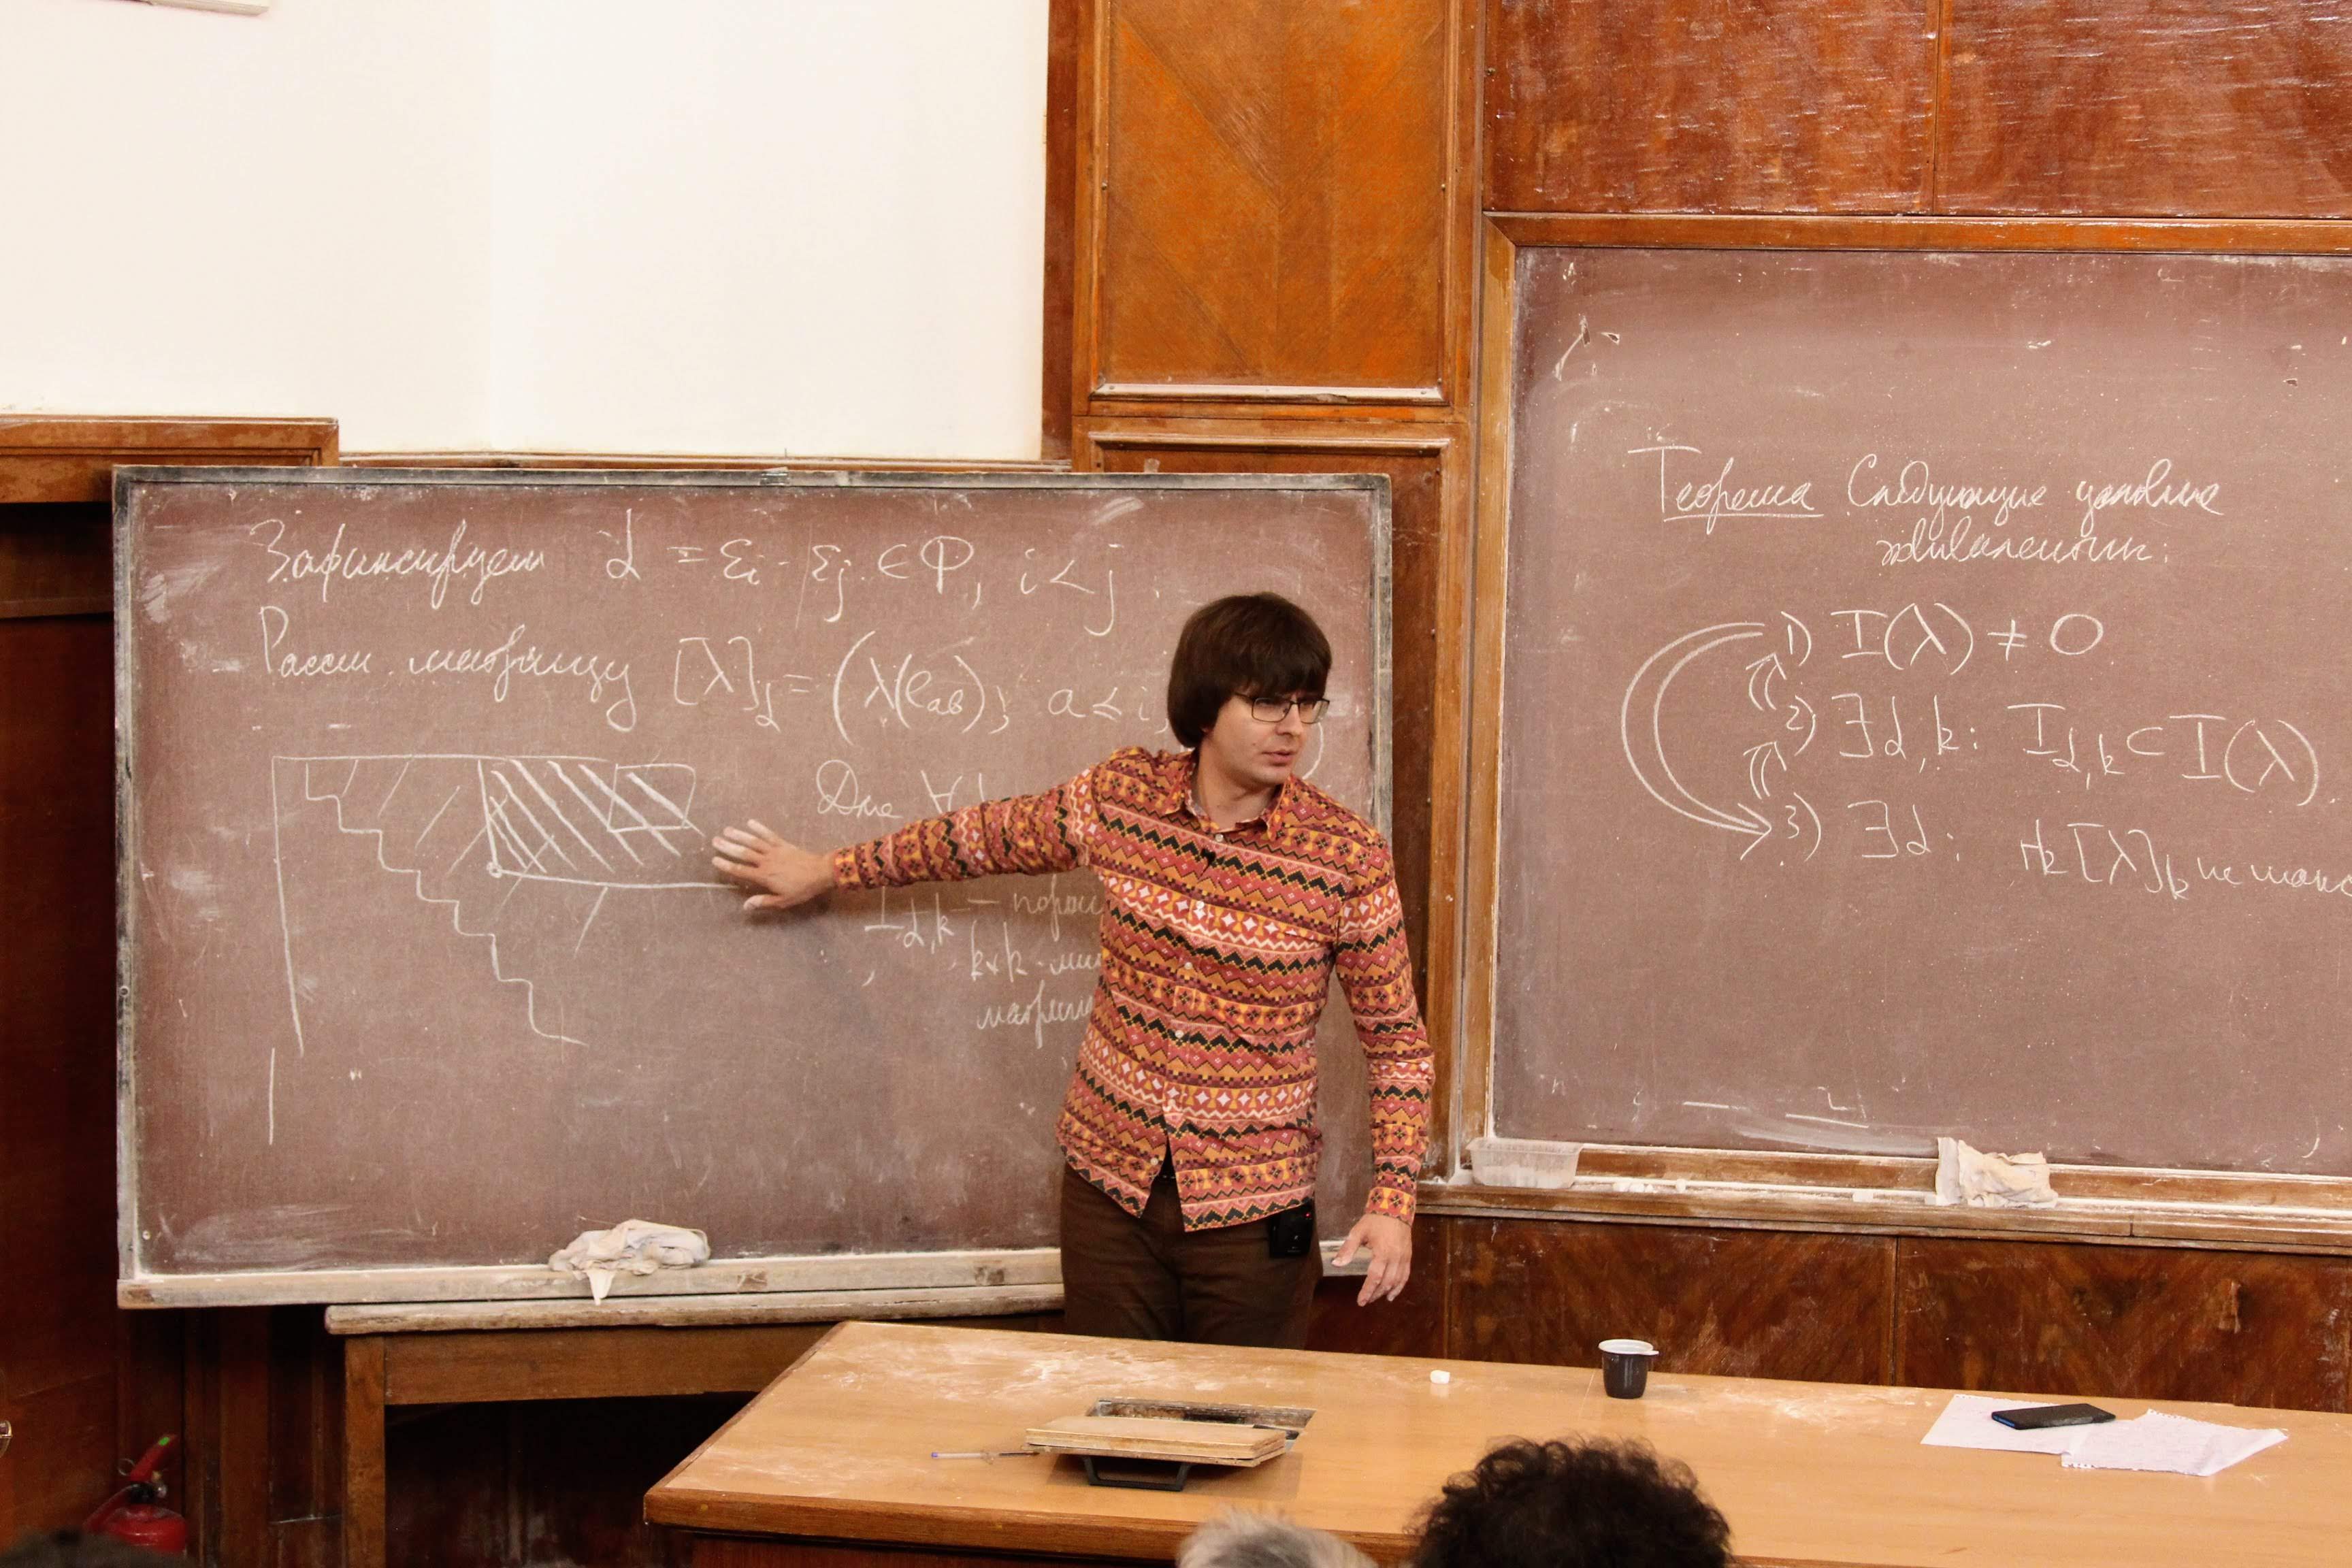 Зафиксируем α = εi - εj ∈ Φ, i < j.
Рассм. матрицу [λ]α = (λ(eab); a ≤ i,
Для ∀
Iα,k —
k×k -
Теорема Следующие условия
эквивалентны:
1) I(λ) ≠ 0
2) ∃α,k: Iα,k ⊂ I(λ)
3) ∃α: